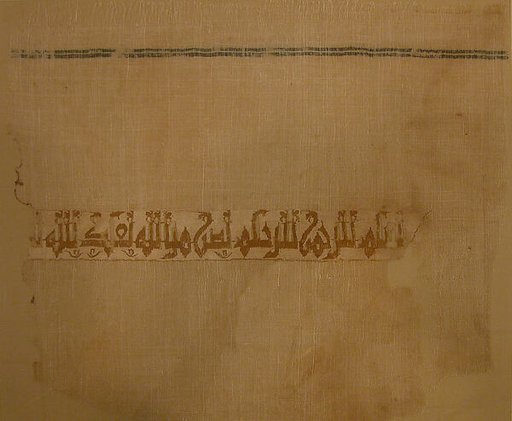 الله الرحمن الرحيم نصر من الله لعبد الله